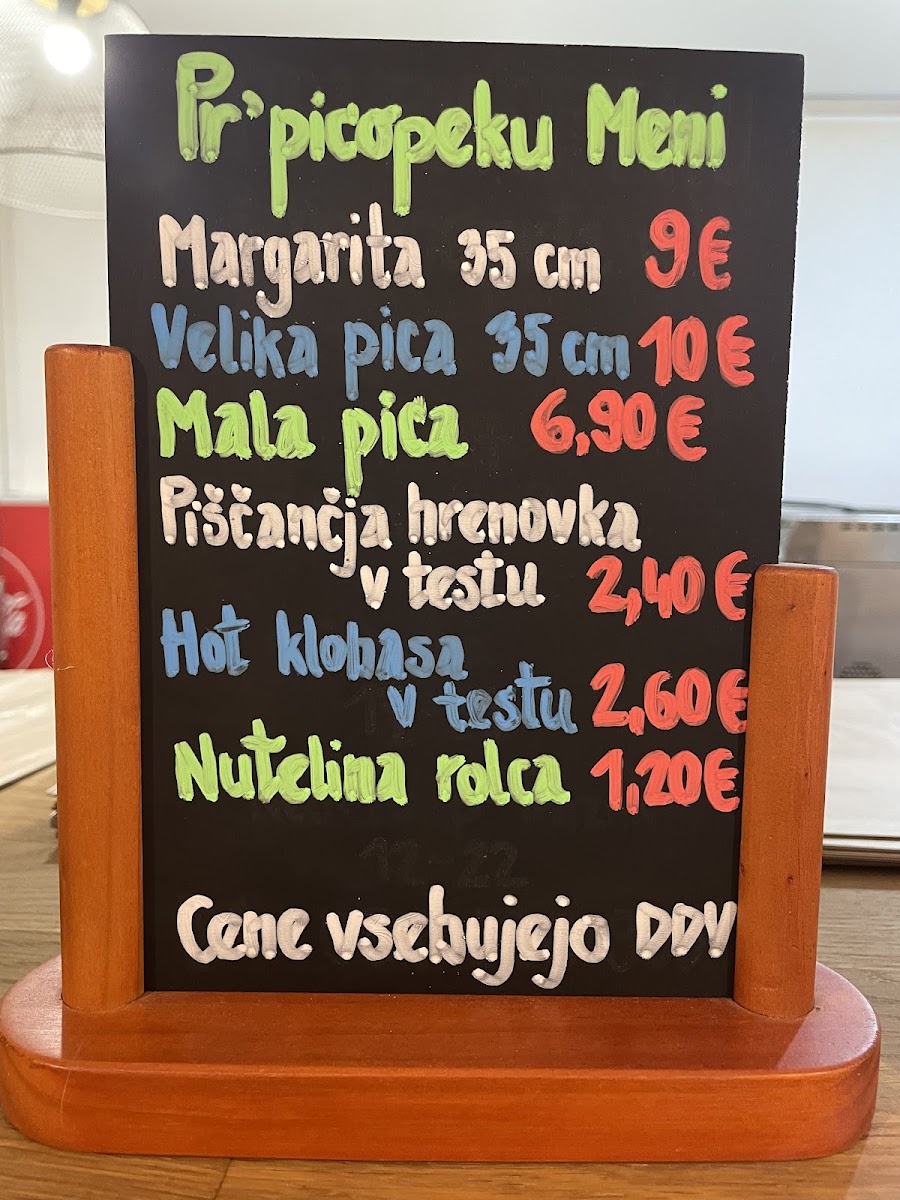 Pr'picopeku Meni
Margarita 35 cm 9€
Velika pica 35 cm 10€
Mala pica 6,90€
Piščančja hrenovka
v testu 2,40€
Hot klobasa
v testu 2,60€
Nutelina rolca 1,20€
12-22
Cene vsebujejo DDV